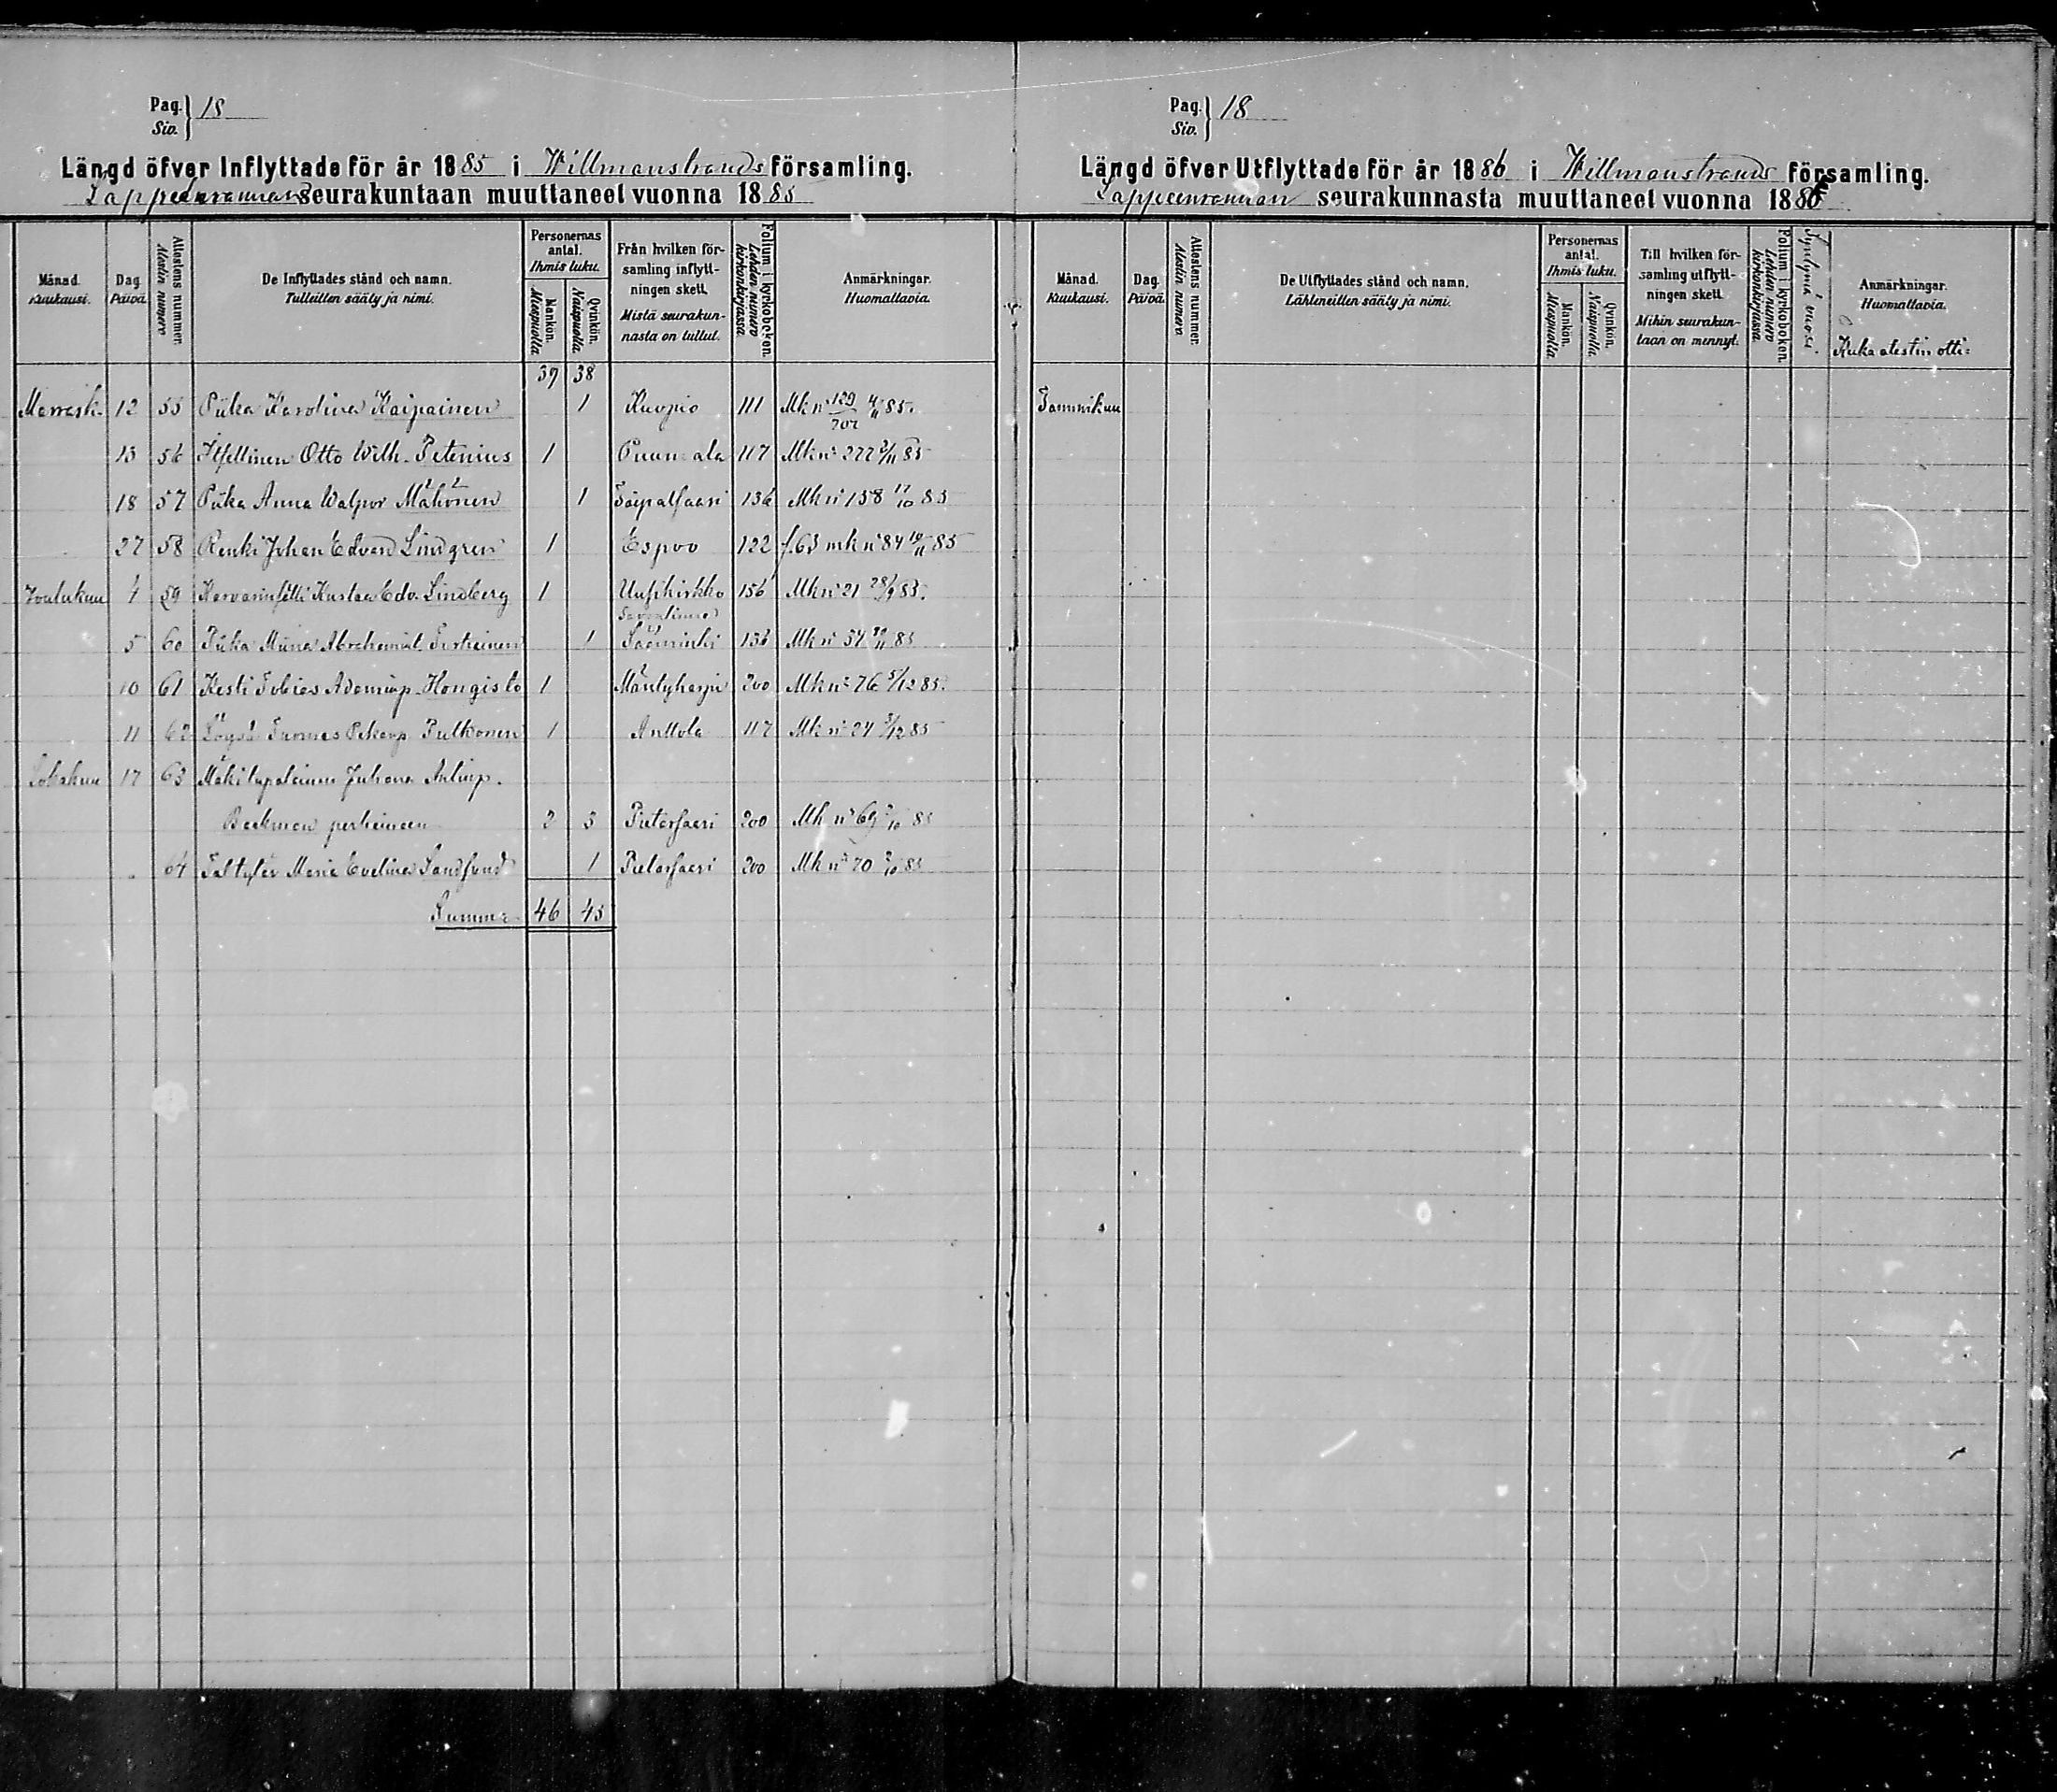 Pag. Siv. 18
Längd öfver Inflyttade för år 1885 i Willmanstrands församling.
Lappeenrannan seurakuntaan muuttaneet vuonna 1885
Månad. Kuukausi.
Dag. Päivä.
Attestens nummer. Atestin numero
De Inflyttades stånd och namn. Tulleitten sääty ja nimi.
Personernas antal. Ihmis luku.
Mankön. Miespuolia
Qvinkön. Naispuolia
Från hvilken församling inflyttningen skett. Mistä seurakunnasta on tullut.
Folium i kyrkoboken. Lehden numero kirkonkirjassa.
Anmärkningar. Huomattavia.
39 38
Marrask. 12 55 Piika Karolina Kaipainen 1 Kuopio 111 Mk nº 129/702 4/11 85.
13 56 Itsellinen Otto Wilh. Petenius 1 Puumala 117 Mk nº 277 2/11 85
18 57 Piika Anna Walpor Mähönen 1 Taipalsaari 136 Mk nº 158 17/10 85
27 58 Renki Johan Edvard Lindgren 1 Espoo 122 f.63 mk nº 84 19/11 85
Joulukuu 4 59 Karvarinsälli Kustaa Edv. Lindberg 1 Uusikirkko 156 Mk nº 21 28/9 85.
Savonlinna
5 60 Piika Miina Abrahamint. Turtiainen 1 Sääminki 136 Mk nº 54 30/11 85
10 61 Kesti Tobias Adaminp. Hongisto 1 Mäntyharju 200 Mk nº 76 5/12 85.
11 62 Tuomas Pekanp. Pulkonen 1 Anttola 117 Mk nº 24 5/12 85
Lokakuu 17 63 Mäkitupalainen Juhana Antinp.
Backman perheineen 2 3 Pietarsaari 200 Mk nº 69 2/10 85
64 Maria Evelina Sandlund 1 Pietarsaari 200 Mk nº 70 2/10 85
Summa 46 45
Pag. Siv. 18
Längd öfver Utflyttade för år 1886 i Willmanstrands församling.
Lappeenrannan seurakunnasta muuttaneet vuonna 1886
Månad. Kuukausi.
Dag. Päivä.
Attestens nummer. Atestin numero
De Utflyttades stånd och namn. Lähteneitten sääty ja nimi.
Personernas antal. Ihmis luku.
Mankön. Miespuolia
Qvinkön. Naispuolia
Till hvilken församling utflyttningen skett. Mihin seurakuntaan on mennyt.
Folium i kyrkoboken. Lehden numero kirkonkirjassa.
Syntymä vuosi.
Anmärkningar. Huomattavia.
Kuka atestin otti:
Tammikuu